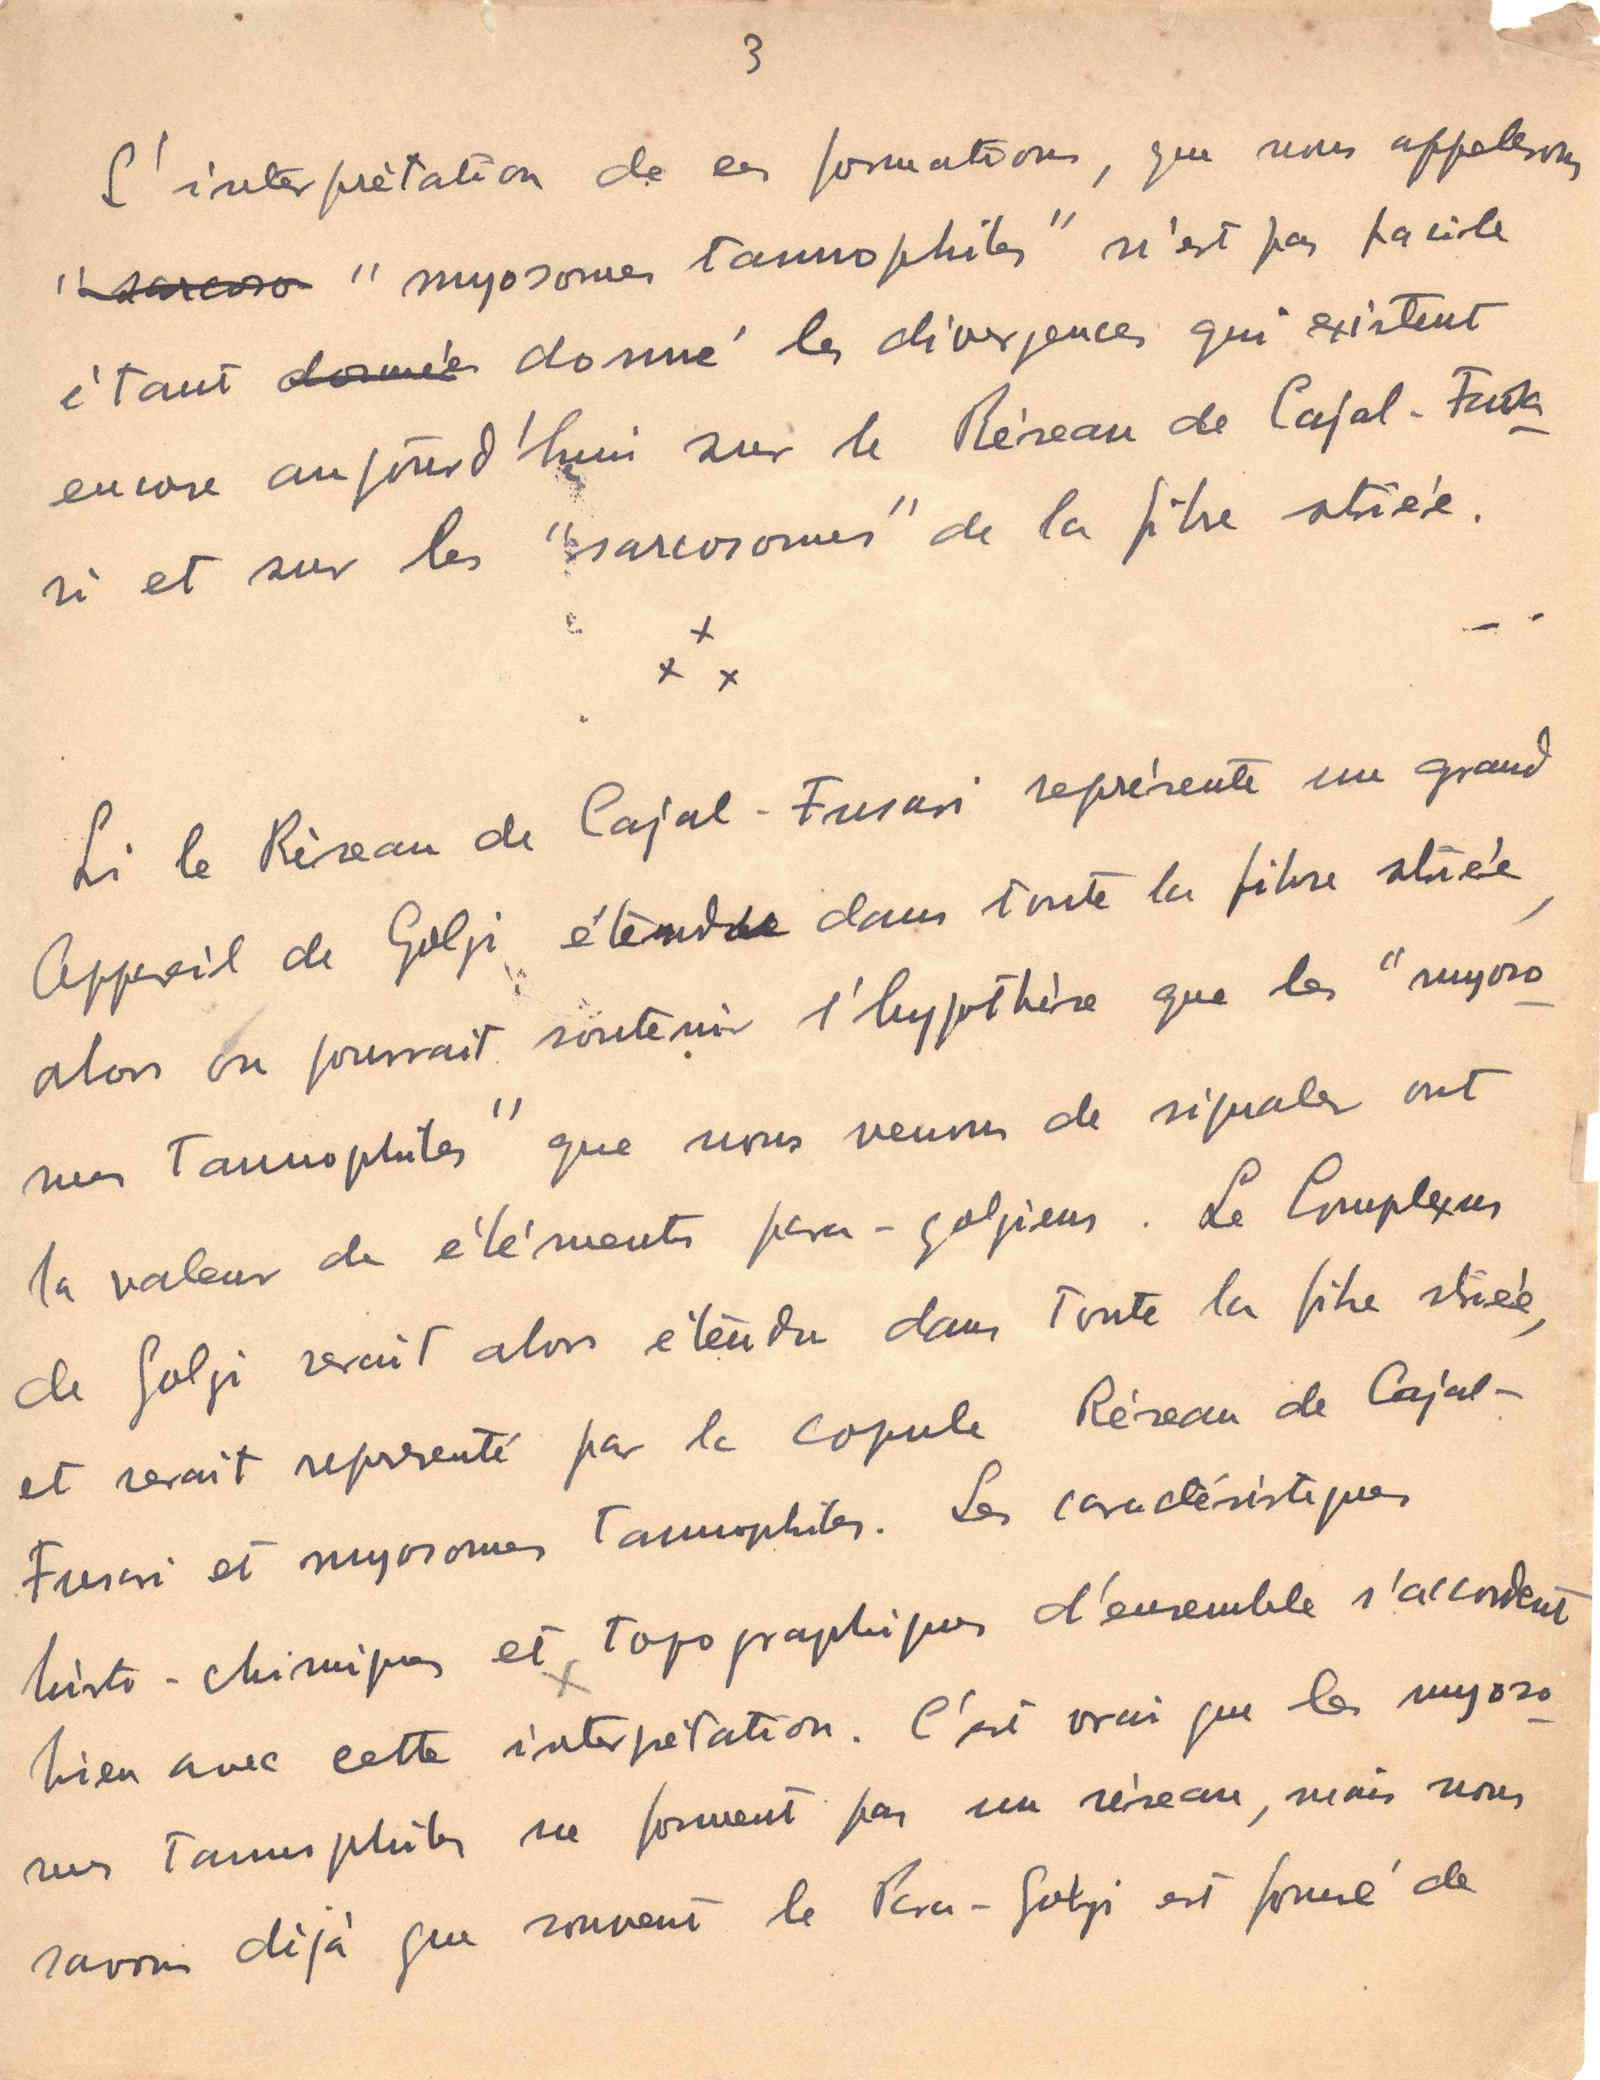 3
L'interprétation de ces formations, que nous appelerons
"sarcoso "myosomes tannophiles" n'est pas facile
étant donnée donné les divergences qui existent
encore aujourd'hui sur le Réseau de Cajal-Fusa
ri et sur les "sarcosomes" de la fibre striée.
x
x x
Si le Réseau de Cajal-Fusari représente un grand
Appareil de Golgi étendu dans toute la fibre striée,
alors on pourrait soutenir l'hypothèse que les "myoso
mes tannophiles" que nous venons de signaler ont
la valeur de éléments para-golgiens. Le Complexus
de Golgi serait alors étendu dans toute la fibre striée,
et serait représenté par la copule Réseau de Cajal-
Fusari et myosomes tannophiles. Les caractéristiques
histo-chimiques et topographiques d'ensemble s'accordent
bien avec cette interprétation. C'est vrai que les myoso
mes tannophiles ne forment pas un réseau, mais nous
savons déjà que souvent le Para-Golgi est formé de